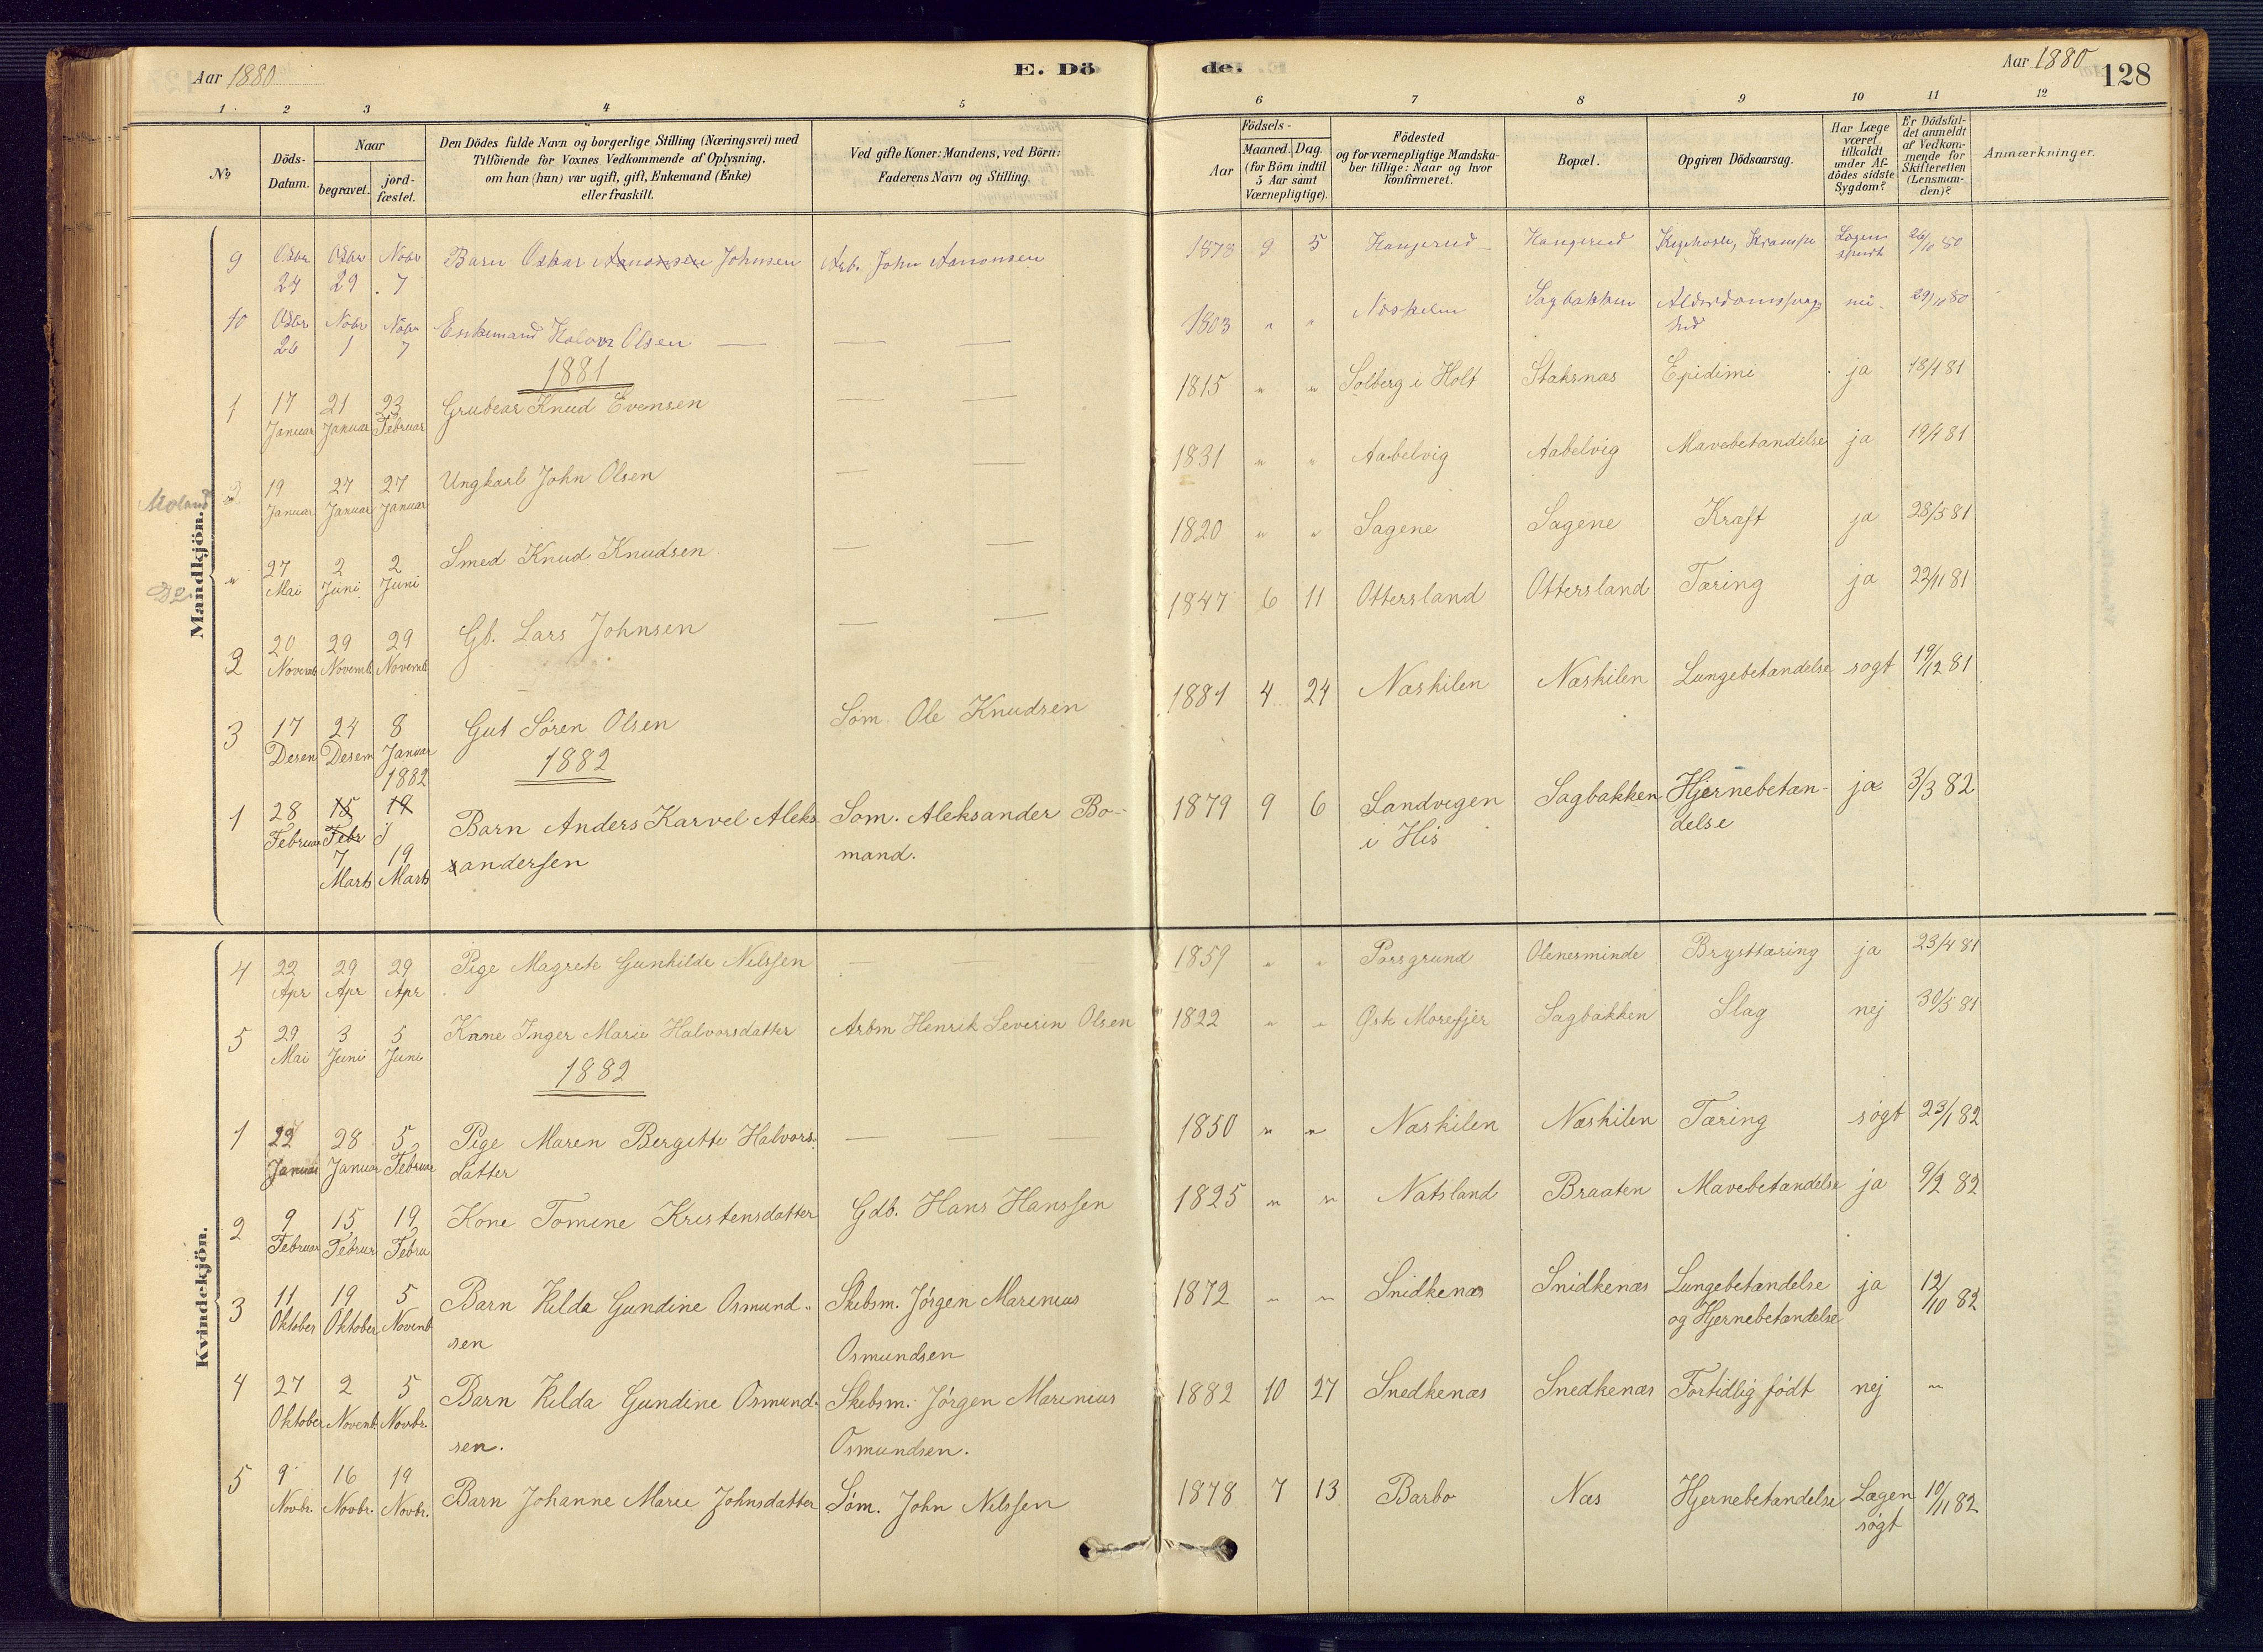 Aar 1880
E. Dö
de.
Aar 1880
128
1. 2 3 4 5 6 7 8 9 10 11 12
No
Döds-Datum.
Naar
begravet.
jord-fæstet.
Den Dödes fulde Navn og borgerlige Stilling (Næringsvei) med
Tilföiende for Voxnes Vedkommende af Oplysning,
om han (hun) var ugift, gift, Enkemand (Enke)
eller fraskilt.
Ved gifte Koner: Mandens, ved Börn:
Faderens Navn og Stilling.
Födsels-
Aar
Maaned. Dag.
(for Börn indtil
5 Aar samt
Værnepligtige).
Födested
og for værnepligtige Mandska-
ber tillige: Naar og hvor
konfirmeret.
Bopæl.
Opgiven Dödsaarsag.
Har Læge
været
tilkaldt
under Af-
dödes sidste
Sygdom?
Er Dödsfal-
det anmeldt
af Vedkom-
mende for
Skifteretten
(Lensman-
den)?
Anmærkninger.
Mandkjön.
9 Oktbr 24 Oktbr 29 Nobr 7 Barn Oskar Johnsen Arb. John 1878 9 5 Kighoste, Krampe Lægen 26/10 80
10 Oktbr 26 Nobr 1 Nobr 7 Enkemand Olsen — — — 1803 " " Næskilen Sagbakken 29/10 80
1881
1 17 Januar 21 Januar 23 Februar Grubear Knud Evensen — — 1815 " " Solberg i Holt Staksnæs Epidimi ja 18/1 81
Moland " 19 Januar 27 Januar 27 Januar Ungkarl John Olsen — — 1831 " " Aabelvig Aabelvig Mavebetændelse ja 19/1 81
Do " 27 Mai 2 Juni 2 Juni Smed Knud Knudsen — — 1820 " " Sagene Sagene Kræft ja 28/5 81
2 20 Novemb 29 Novemb 29 Novemb Gb. Lars Johnsen — — 1847 6 11 Ottersland Ottersland Tæring ja 22/11 81
3 17 Desem 24 Desem 8 Januar 1882 Gut Sören Olsen Søm. Ole Knudsen 1881 4 24 Næskilen Næskilen Lungebetændelse sogt 19/12 81
1882
1 28 Februar 15 Febr 7 Marts 19 19 Marts Barn Anders Karvel Aleks- Søm. Aleksander Bo- 1879 9 6 Sandvigen Sagbakken Hjernebetæn- ja 3/3 82
andersen mand. i His delse
Kvindekjön.
4 22 Apr 29 Apr 29 Apr Pige Magrete Gunhilde Nilssen — — 1859 " " Porsgrund Olenesminde Brysttæring ja 23/4 81
5 29 Mai 3 Juni 5 Juni Kone Inger Marie Halvorsdatter Arbm Henrik Severin Olsen 1822 " " Morefjer Sagbakken Slag nej 30/5 81
1882
1 22 Januar 28 Januar 5 Februar Pige Maren Bergitte Halvors- — — 1850 " " Næskilen Næskilen Tæring søgt 23/1 82
datter
2 9 Februar 15 Februar 19 Febru Kone Tomine Kristensdatter Gdb. Hans Hanssen 1825 " " Natsland Braaten Mavebetændelse ja 9/2 82
3 11 Oktober 19 Oktober 5 Novemb Barn Hilda Gundine Osmund- Skibsm. Jörgen Marenius 1872 " " Snidkenæs Snidkenæs Lungebetændelse ja 12/10 82
sen Osmundsen og Hjernebetændelse
4 27 Oktober 2 Novemb. 5 Novbr. Barn Hilda Gundine Osmund- Skibsm. Jörgen Marenius 1882 10 27 Snedkenæs Snedkenæs Fortidlig födt nej "
sen. Osmundsen.
5 9 Novbr. 16 Novbr. 19 Novbr. Barn Johanne Marie Johnsdatter Söm. John Nilssen 1878 7 13 Barbo Næs Hjernebetændelse Lægen søgt 10/11 82